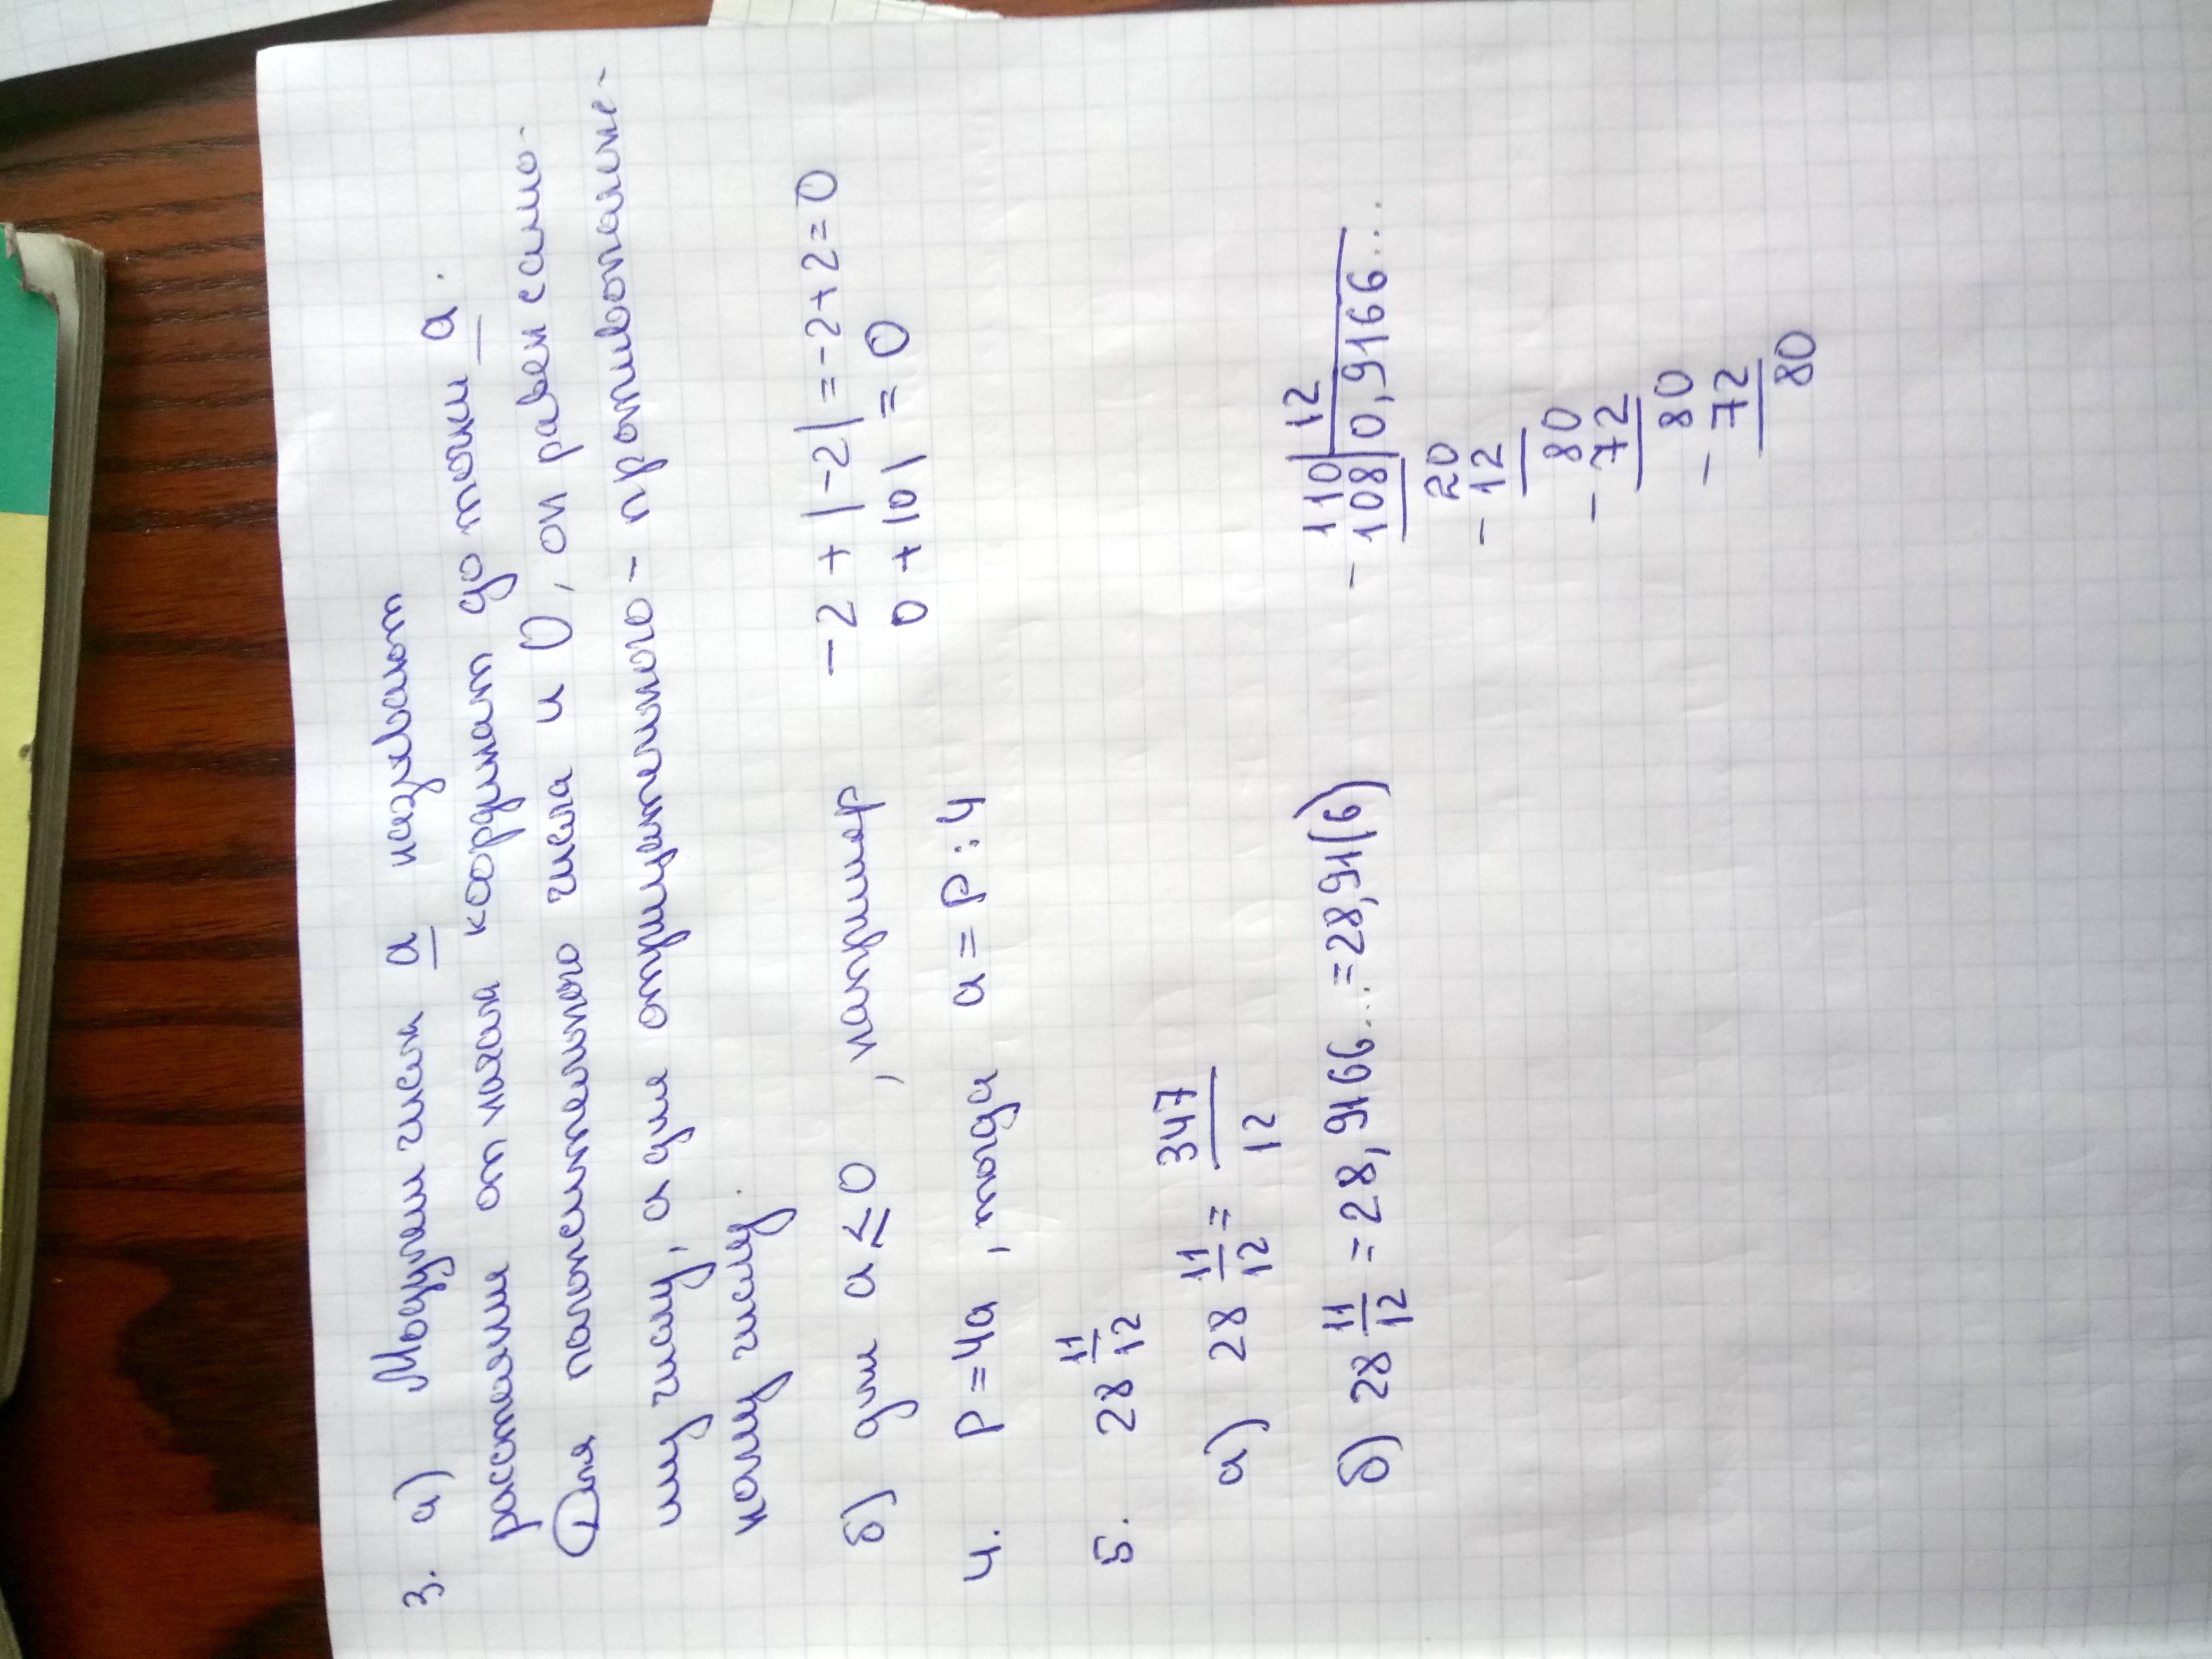 3. а) Модулем числа а называют
расстояние от начала координат до точки а.
Для положительного числа и 0, он равен само-
му числу, а для отрицательного - противополож-
ному числу.
б) для а ≤ 0 , например −2 + |−2| = −2 + 2 = 0
0 + |0| = 0
4. P = 4a , тогда a = P : 4
5. 28 11/12
а) 28 11/12 = 347/12
б) 28 11/12 = 28,9166... = 28,91(6)
− 110 | 12
108 | 0,9166...
20
− 12
80
− 72
80
− 72
80